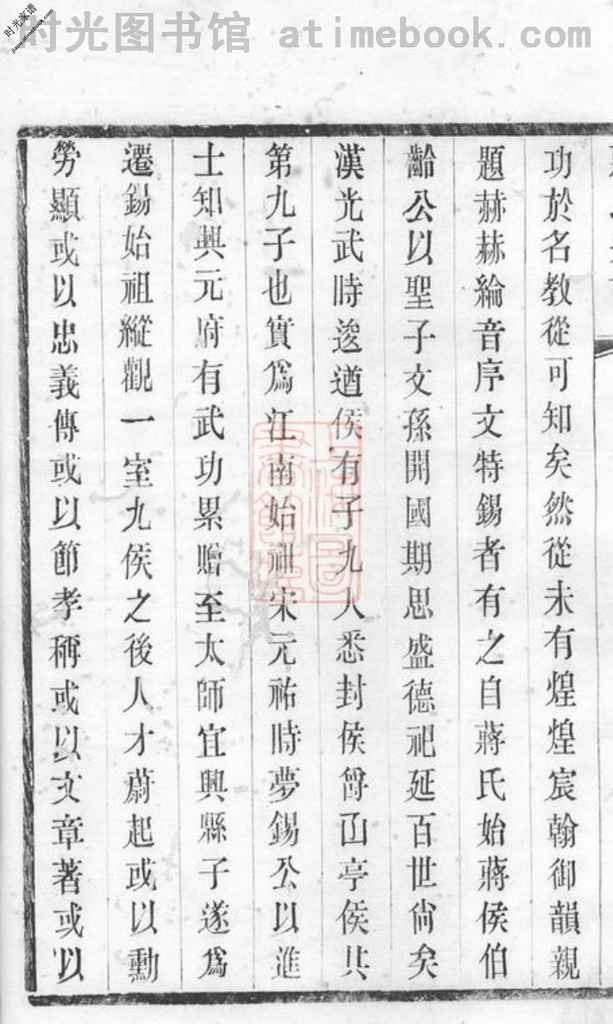 时光图书馆 atimebook.com
时光家谱
功於名教從可知矣然從未有煌煌宸翰御韻親
題赫赫綸音序文特錫者有之自蔣氏始蔣侯伯
齡公以聖子文孫開國期思盛德祀延百世尙矣
漢光武時逡遒侯有子九人悉封侯曾山亭侯其
第九子也實爲江南始祖宋元祐時夢錫公以進
士知興元府有武功累贈至太師宜興縣子遂爲
遷錫始祖縱觀一室九侯之後人才蔚起或以勳
勞顯或以忠義傳或以節孝稱或以文章著或以